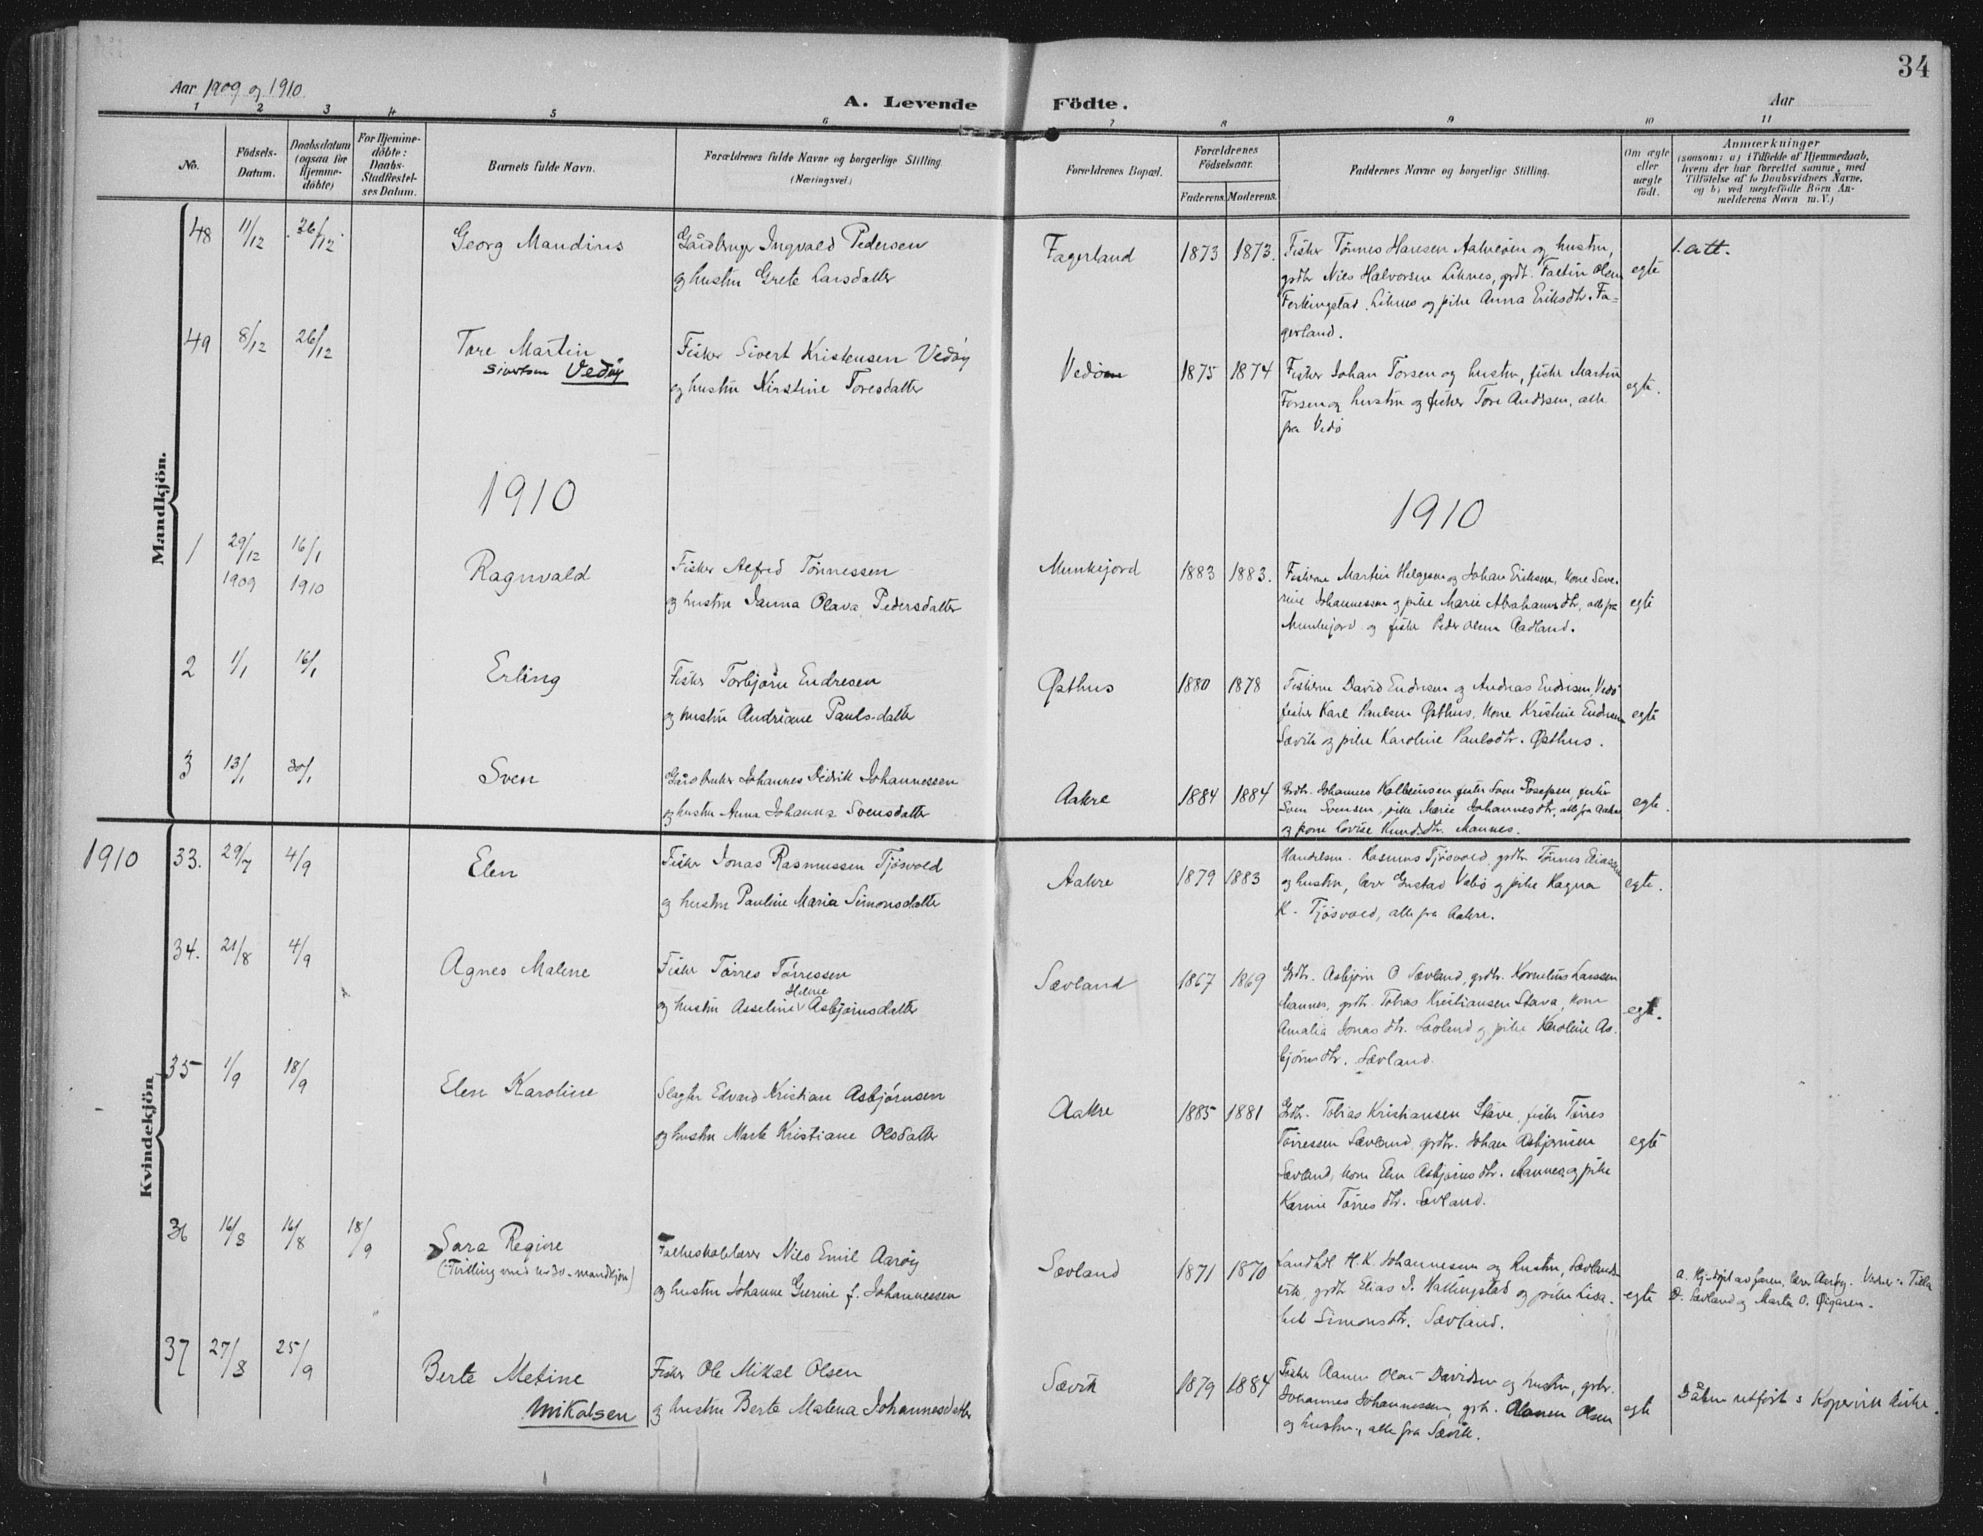 34
Aar 1909 og 1910.
A. Levende Födte.
Aar
1 2 3 4 5 6 7 8 9 10 11
No.
Födsels-
Datum.
Daabsdatum
(ogsaa for
Hjemme-
döbte)
For Hjemme-
döbte:
Daabs-
Stadfæstel-
ses Datum.
Barnets fulde Navn.
Forældrenes fulde Navne og borgerlige Stilling
(Næringsvei)
Forældrenes Bopæl.
Forældrenes
Födselsaar.
Faderens. Moderens.
Faddernes Navne og borgerlige Stilling.
Om ægte
eller
uægte
födt.
Anmærkninger
(saasom: a) i Tilfælde af Hjemmedaab,
hvem der har forrettet samme, med
Tilföielse af to Daabsvidners Navne,
og b) ved uægtefödte Börn An-
melderens Navn m. V.)
Mandkjön.
48 11/12 26/12 Georg Mandius
Gårdbruger Ingvald Pedersen
og hustru Grete Larsdatter
Fagerland 1873 1873.
Fisker Tønnes Hansen Aakreøen og hustru,
grdbr Niels Halvorsen Liknes, grdt. Faltin Olsen
Ferkingstad, Liknes og pike Anna Eriksdtr. Fa-
gerland.
egte
1. att.
49 8/12 26/12 Tore Martin
Sivertsen Vedøy
Fisker Sivert Kristensen Vedøy
og hustru Kirstine Toresdatter
Vedøen 1875 1874
Fisker Johan Torsen og hustru, fisker Martin
Torsen og hustru og fisker Tore Andersen, alle
fra Vedø
egte.
1910
1910
1 29/12 1909 16/1 1910 Ragnvald
Fisker Alfred Tønnessen
og hustru Janna Olava Pedersdatter
Munkejord 1883 1883.
Fiskerne Martin Helgesen og Johan Eriksen, kone Seve-
rine Johannessen og pike Marie Abrahamsdtr, alle fra
Munkejord og fisker Peder Olsen Aadland.
egte
2 1/1 16/1 Erling
Fisker Torbjørn Endresen
og hustru Andriane Paulsdatter
Østhus 1880 1878
Fiskerne David Endresen og Andreas Endresen, Vedø
fisker Karl Paulsen Østhus, kone Kristine Endresen
Sævik og pike Karoline Paulsdtr. Østhus.
egte
3 13/1 30/1 Sven
Gårdbruker Johannes Didrik Johannessen
og hustru Anna Johanna Svensdatter
Aakre 1884 1884
Grdbr. Johannes Kolbensen, fisker Sven Josefsen, fisker
Sven Svensen, pike Marie Johannesdtr, alle fra Aakre
og kone Lovise Knudsdtr. Mannes.
egte.
1910
Kvindekjön
33. 29/7 4/9 Elen
Fisker Jonas Rasmussen Tjøsvold
og hustru Pauline Maria Simonsdatter
Aakre 1879 1883
Handelsm. Rasmus Tjøsvold, grdbr. Tønnes Eliassen
og hustru, lærer Gustad Vabø og pike Ragna
K. Tjøsvold, alle fra Aakre.
egte.
34. 21/8 4/9 Agnes Malene
Fisker Tørres Tørressen
og hustru Asseline Helene Asbjørnsdatter
Sævland 1867 1869
Grdbr. Asbjørn O Sævland, grdbr. Kornelius Larssen
Mannes, grdbr. Tobias Kristiansen Stava, kone
Amalia Jonasdtr. Sævland og pike Karoline As-
bjørnsdtr. Sævland.
egte.
35 1/9 18/9 Elen Karoline
Slagter Edvard Kristian Asbjørnsen
og hustru Marte Kristiane Olsdatter
Aakre 1885 1881
Grdbr. Tobias Kristiansen Stave, fisker Tørres
Tørressen Sævland, grdbr. Johan Asbjørnsen
Sævland, kone Elen Asbjørnsdtr. Mannes og pike
Karine Tørresdtr. Sævland.
egte
36 16/8 16/8 18/9 Sara Regine
(Tvilling med nr 30 - mandkjøn)
Folkeskolelærer Nils Emil Aarøy
og hustru Johanne Gurine f. Johannessen
Sævland 1871 1870
Landhdl H. K. Johannessen og hustru, Sævlands-
vik, grdbr Elias I. Hallingstad og pike Lisa-
bet Simonsdtr. Sævland.
egte
a. Hj. døpt av faren, lærer Aarøy. Vidner: Tilla
D. Sævland og Marta O. Øigaren.
37 27/8 25/9 Berte Metine
Mikalsen
Fisker Ole Mikal Olsen
og hustru Berte Malena Johannesdatter
Sævik 1879 1884
Fisker Aamen Olai Davidsen og hustru, grbr.
Johannes Johannessen, grbr. Aanen Olsen
og hustru, alle fra Sævik.
egte
Dåben utført i Kopervik kirke.